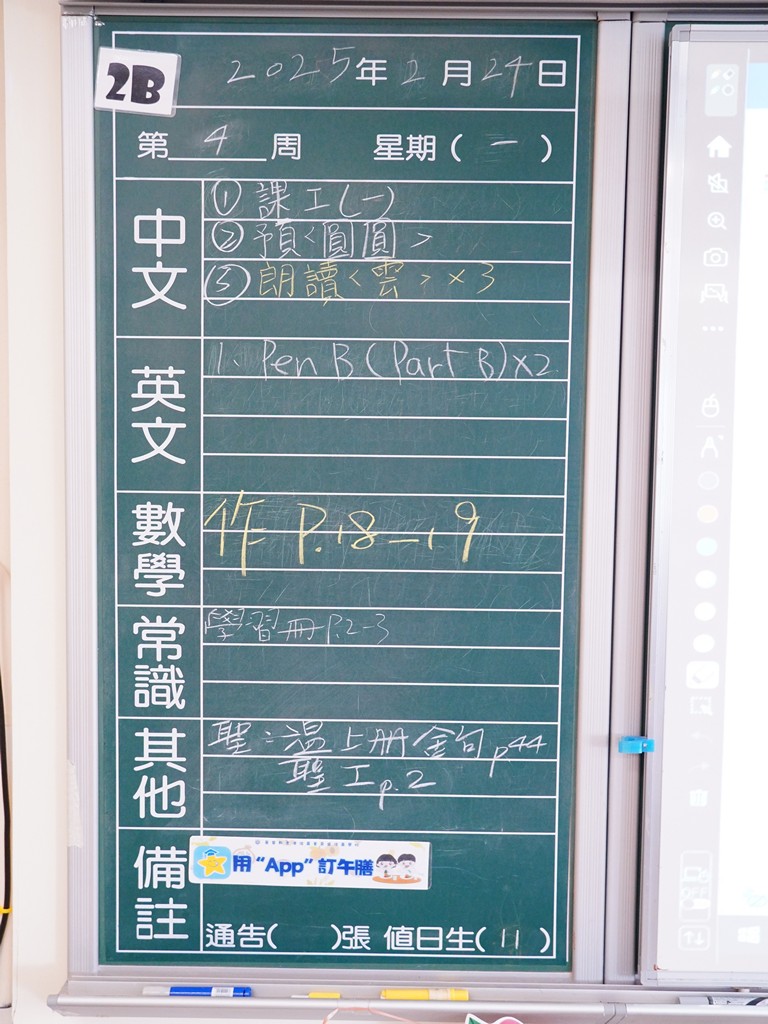 2B
2025年2月24日
第 4 周 星期(一)
中文
①課工(一)
②預<圓圓>
③朗讀<雲>×3
英文
1. Pen B (Part B)×2
數學
作 P.18-19
常識
學習冊 P.2-3
其他
聖:溫上册金句 p44
聖工 p.2
備註
用“App”訂午膳
通告( )張 值日生(11)